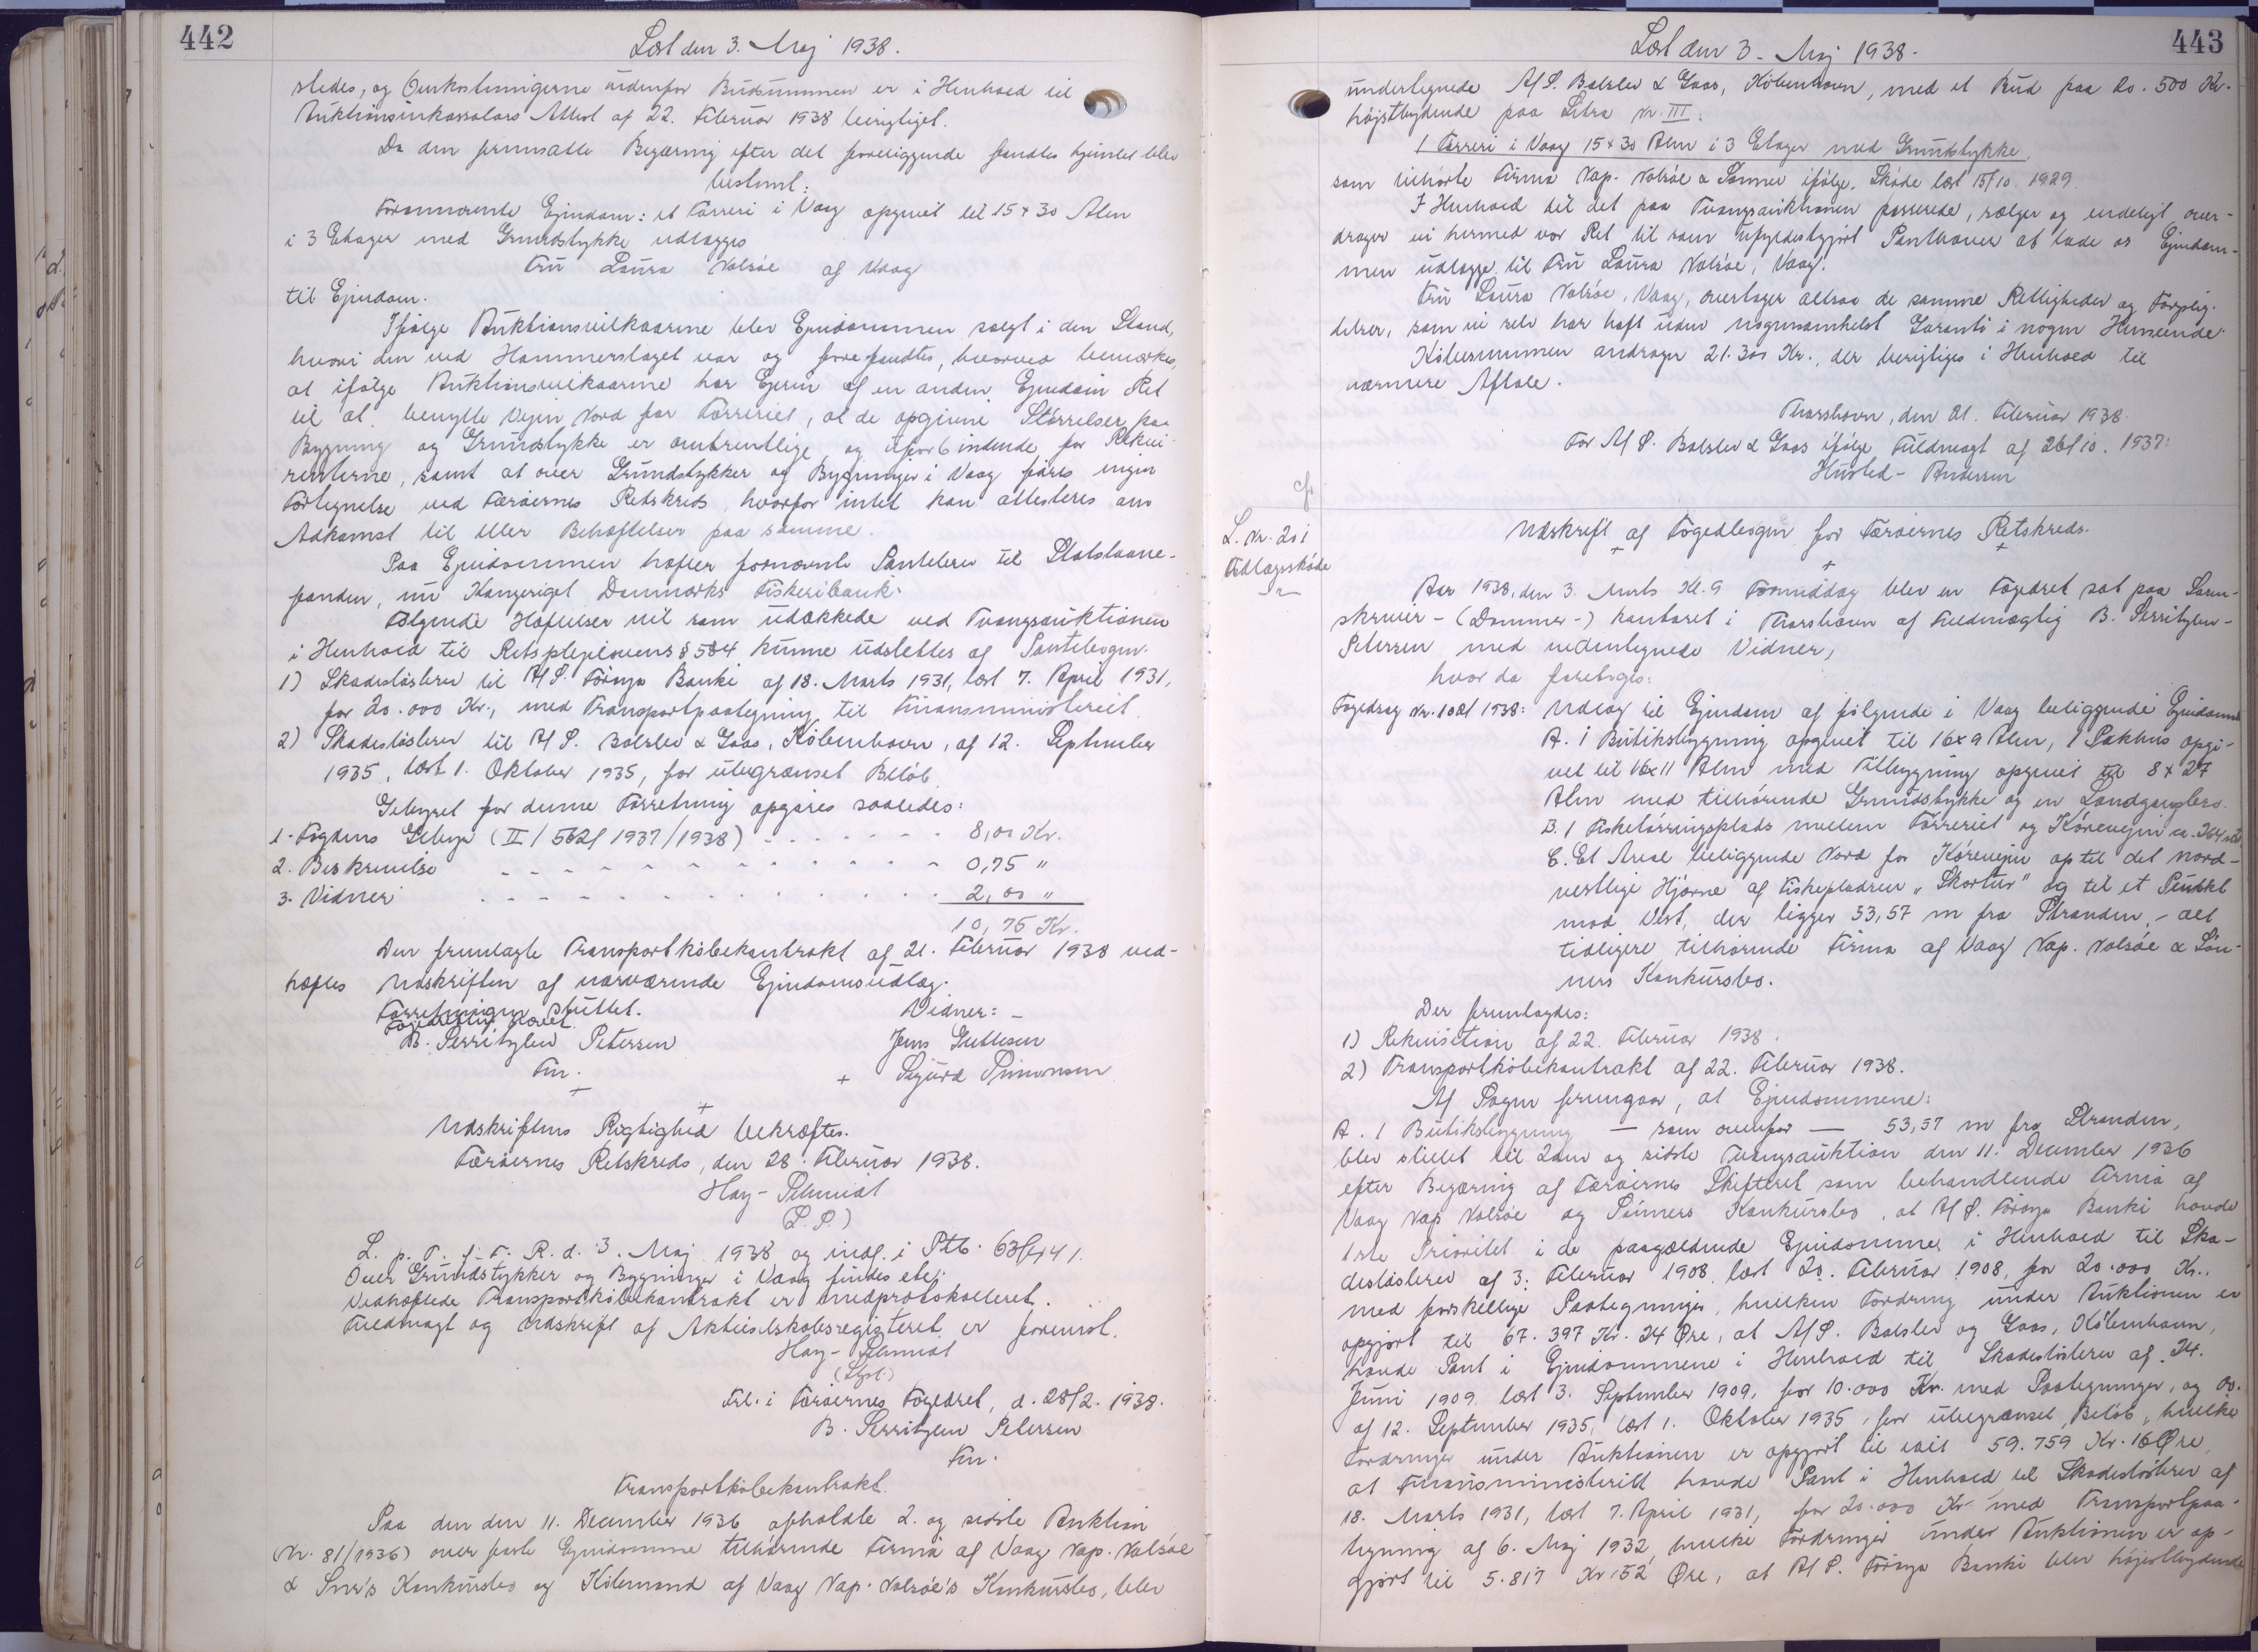 442
Læst den 3. Maj 1938.
stedes, og Omkostningerne udenfor Budsummen er i Henhold til
Auktionsinkassators Attest af 22. Februar 1938 berigtiget.
Da den fremsatte Begæring efter det foreliggende fandtes hjemlet blev
bestemt:
Forannævnte Ejendom: et Tørreri i Vaag opgivet til 15 x 30 Alen
i 3 Etager med Grundstykke udlægges
Fru Laura Volsøe af Vaag
til Ejendom.
Ifølge Auktionsvilkaarene blev Ejendommen solgt i den Stand,
hvori den ved Hammerslaget var og forefandtes, hvorved bemærkes,
at ifølge Auktionsvilkaarene har Ejeren af en anden Ejendom Ret
til at benytte Vejen Nord for Tørreriet, at de opgivne Størrelser paa
Bygning og Grundstykke er omtrentlige og uforbindende for Rekvi-
renterne, samt at over Grundstykker og Bygninger i Vaag føres ingen
Fortegnelse ved Færøernes Retskreds, hvorfor intet kan attesteres om
Adkomst til eller Behæftelser paa samme.
Paa Ejendommen hæfter fornævnte Pantebrev til Statslaane-
fonden, nu Kongeriget Danmarks Fiskeribank.
Følgende Hæftelser vil som udækkede ved Tvangsauktionen
i Henhold til Retsplejelovens § 584 kunne udslettes af Pantebogen:
1) Skadesløsbrev til A/S. Føroya Banki af 18. Marts 1931, læst 7. April 1931,
for 20.000 Kr., med Transportpaategning til Finansministeriet
2) Skadesløsbrev til A/S. Balslev & Gaas, København, af 12. September
1935, læst 1. Oktober 1935, for ubegrænset Beløb
Gebyret for denne Forretning opgøres saaledes:
1. Fogdens Gebyr (II / 562/ 1937/1938) - - - - - - - 8,00 Kr.
2. Beskrivelse - - - - - - - - - - - - 0,75 "
3. Vidner - - - - - - - - - - - - 2,00 "
10,75 Kr.
Den fremlagte Transportkøbekontrakt af 21. Februar 1938 ved-
hæftes Udskriften af nærværende Ejendomsudlæg.
Forretningen sluttet.
Fogedretten hævet.
Vidner: -
B. Serritzlew Petersen
Jens Guttesen
Fm.
+ Sigurd Simonsen
Udskriftens Rigtighed bekræftes.
Færøernes Retskreds, den 28. Februar 1938.
Hay-Schmidt
(L. S.)
L. p. T. f. F. R. d. 3. Maj 1938 og indf. i Ptb. 63/441.
Over Grundstykker og Bygninger i Vaag findes ej
Vedhæftede Transportkøbekontrakt er medprotokolleret.
Fuldmagt og Udskrift af Aktieselskabsregisteret er forevist.
Hay-Schmidt
(Styst.)
Frl. i Færøernes Fogedret, d. 28/2. 1938.
B. Serritzlew Petersen
Fm.
Transportkøbekontrakt.
Paa den den 11. December 1936 afholdte 2. og sidste Auktion
(Nr. 81/1936) over faste Ejendomme tilhørende Firma af Vaag Nap. Volsøe
& Søn's Konkursbo og Købmand af Vaag Nap. Volsøe's Konkursbo, blev
443
Læst den 3. Maj 1938.
undertegnede A/S. Balslev & Gaas, København, med et Bud paa 20.500 Kr.
højstbydende paa Litra Nr. III:
1 Tørreri i Vaag 15 x 30 Alen i 3 Etager med Grundstykke,
som tilhørte Firma Nap. Volsøe & Sønner ifølge Skøde læst 15/10. 1929.
I Henhold til det paa Tvangsauktionen passerede, sælger og endeligt over-
drager vi hermed vor Ret til som ufyldestgjort Panthaver at lade os Ejendom-
men udlægge til Fru Laura Volsøe, Vaag.
Fru Laura Volsøe, Vaag, overtager altsaa de samme Rettigheder og Forplig-
telser, som vi selv har haft uden nogensomhelst Garanti i nogen Henseende.
Købesummen andrager 21.300 Kr., der berigtiges i Henhold til
nærmere Aftale.
Thorshavn, den 21. Februar 1938.
For A/S. Balslev & Gaas ifølge Fuldmagt af 26/10. 1937:
Husted-Andersen
cfr
L. Nr. 201
Udlægsskøde
Udskrift af Fogedbogen for Færøernes Retskreds.
Aar 1938, den 3. Marts Kl. 9 Formiddag blev en Fogedret sat paa Soren-
skriver- (Dommer-) kontoret i Thorshavn af Fuldmægtig B. Serritzlew-
Petersen med undertegnede Vidner,
hvor da foretoges:
Fogedsag Nr. 108/ 1938: Udlæg til Ejendom af følgende i Vaag beliggende Ejendomme
A. 1 Butiksbygning opgivet til 16 x 9 Alen, 1 Pakhus opgi-
vet til 16 x 11 Alen med Tilbygning opgivet til 8 x 27
Alen med tilhørende Grundstykke og en Landgangsbro.
B. 1 Fisketørringsplads mellem Tørreriet og Kørevejen ca. 264
C. Et Areal beliggende Nord for Kørevejen op til det nord-
vestlige Hjørne af Fiskepladsen "Skortur" og til et Punkt
mod Vest, der ligger 53,57 m fra Stranden, - alt
tidligere tilhørende Firma af Vaag Nap. Volsøe & Søn-
ners Konkursbo.
Der fremlagdes:
1) Rekvisition af 22. Februar 1938.
2) Transportkøbekontrakt af 22. Februar 1938.
Af Sagen fremgaar, at Ejendommene:
A. 1 Butiksbygning — som ovenfor — 53,57 m fra Stranden,
blev stillet til 2den og sidste Tvangsauktion den 11. December 1936
efter Begæring af Færøernes Skifteret som behandlende Firma af
Vaag Nap Volsøe og Sønners Konkursbo, at A/S. Føroya Banki havde
1ste Prioritet i de paagældende Ejendomme i Henhold til Ska-
desløsbrev af 3. Februar 1908, læst 20. Februar 1908, for 20.000 Kr.,
med forskellige Paategninger, hvilken Fordring under Auktionen er
opgjort til 67.397 Kr. 24 Øre, at A/S. Balslev og Gaas, København,
havde Pant i Ejendommene i Henhold til Skadesløsbrev af 24.
Juni 1909 læst 3. September 1909, for 10.000 Kr. med Paategninger, og do.
af 12. September 1935, læst 1. Oktober 1935, for ubegrænset Beløb, hvilke
Fordringer under Auktionen er opgjort til ialt 59.759 Kr. 16 Øre,
at Finansministeriet havde Pant i Henhold til Skadesløsbrev af
18. Marts 1931, læst 7. April 1931, for 20.000 Kr. med Transportpaa-
tegning af 6. Maj 1932, hvilke Fordringer under Auktionen er op-
gjort til 5.817 Kr. 52 Øre, at A/S. Føroya Banki blev højestbydende